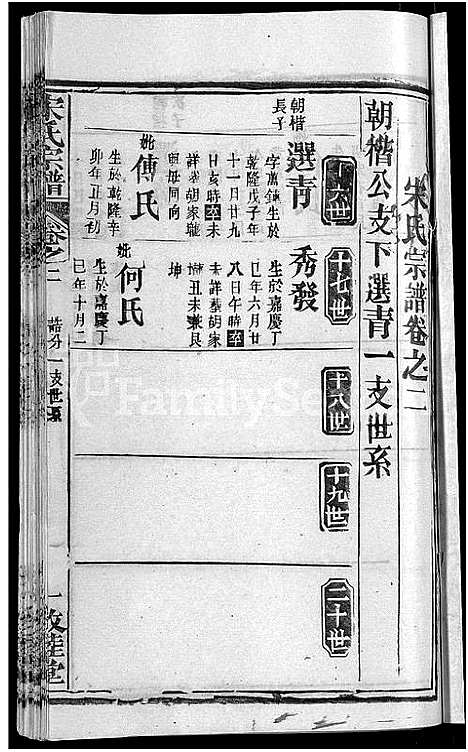 宋氏宗譜卷之二
朝楷公支下選青一支世系
十六世
十七世
十八世
十九世
二十世
朝楷
長子
選青
字萬鍾生於
乾隆戊子年
十一月廿九
日亥時卒未
詳葬胡家壠
與母同向
妣傅氏
生於乾隆辛
卯年正月初
秀發
生於嘉慶丁
巳年六月廿
八日午時卒
未詳葬胡家
壠丑未兼艮
坤
妣何氏
生於嘉慶丁
巳年十月二
宋氏宗譜
卷之二
一支世系
一
FamilySe